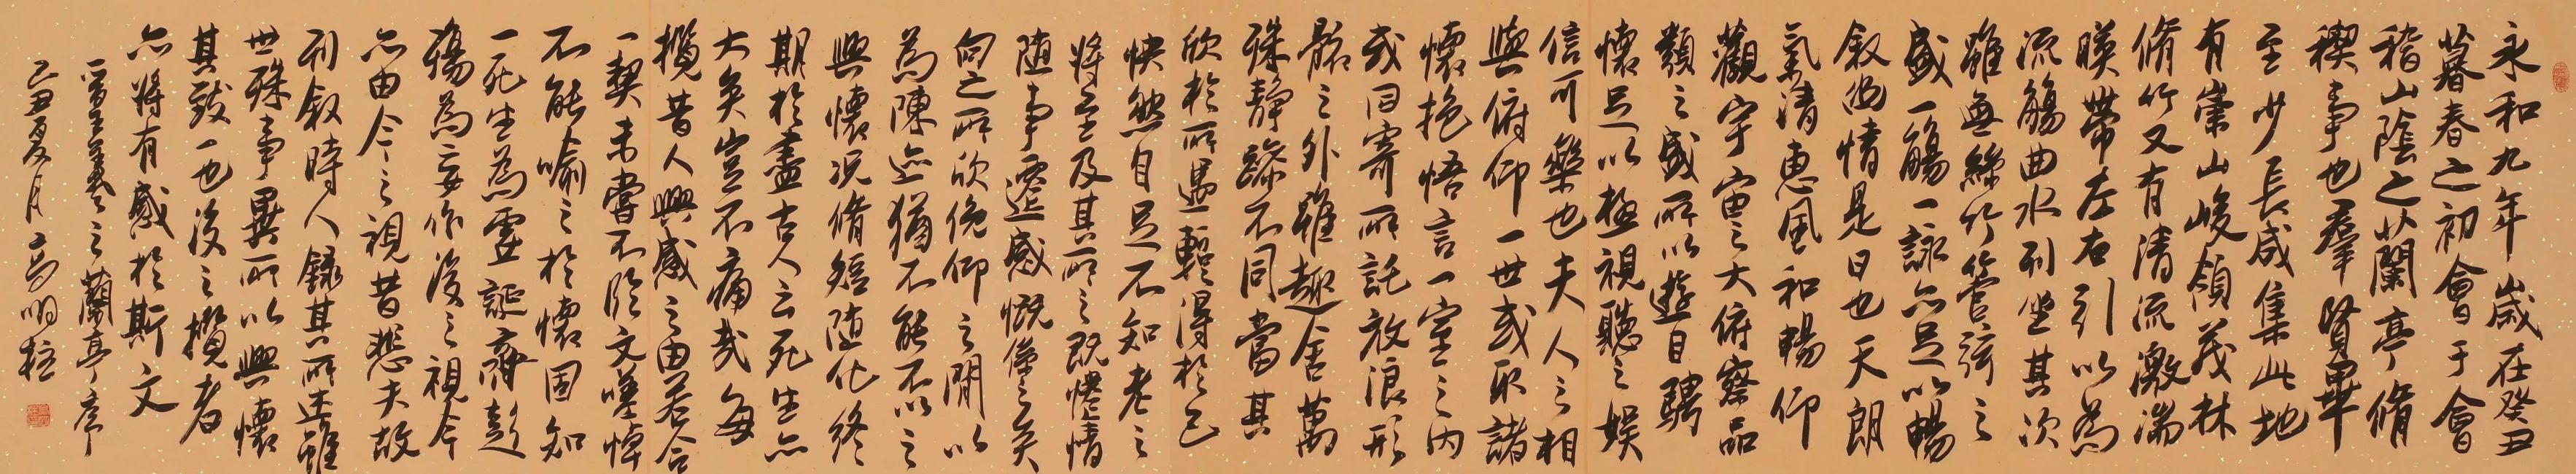 永和九年歲在癸丑
暮春之初會于會
稽山陰之蘭亭脩
禊事也羣賢畢
至少長咸集此地
有崇山峻領茂林
脩竹又有清流激湍
暎帶左右引以為
流觴曲水列坐其次
雖無絲竹管弦之
盛一觴一詠亦足以暢
敘幽情是日也天朗
氣清惠風和暢仰
觀宇宙之大俯察品
類之盛所以遊目騁
懷足以極視聽之娛
信可樂也夫人之相
與俯仰一世或取諸
懷抱悟言一室之內
或因寄所託放浪形
骸之外雖趣舍萬
殊靜躁不同當其
欣於所遇暫得於己
快然自足不知老之
將至及其所之既惓情
隨事遷感慨係之矣
向之所欣俛仰之間以
為陳迹猶不能不以之
興懷況脩短隨化終
期於盡古人云死生亦
大矣豈不痛哉每
攬昔人興感之由若合
一契未嘗不臨文嗟悼
不能喻之於懷固知
一死生為虛誕齊彭
殤為妄作後之視今
亦由今之視昔悲夫故
列敘時人錄其所述雖
世殊事異所以興懷
其致一也後之攬者
亦將有感於斯文
晉王羲之蘭亭序
己丑夏月高明柱